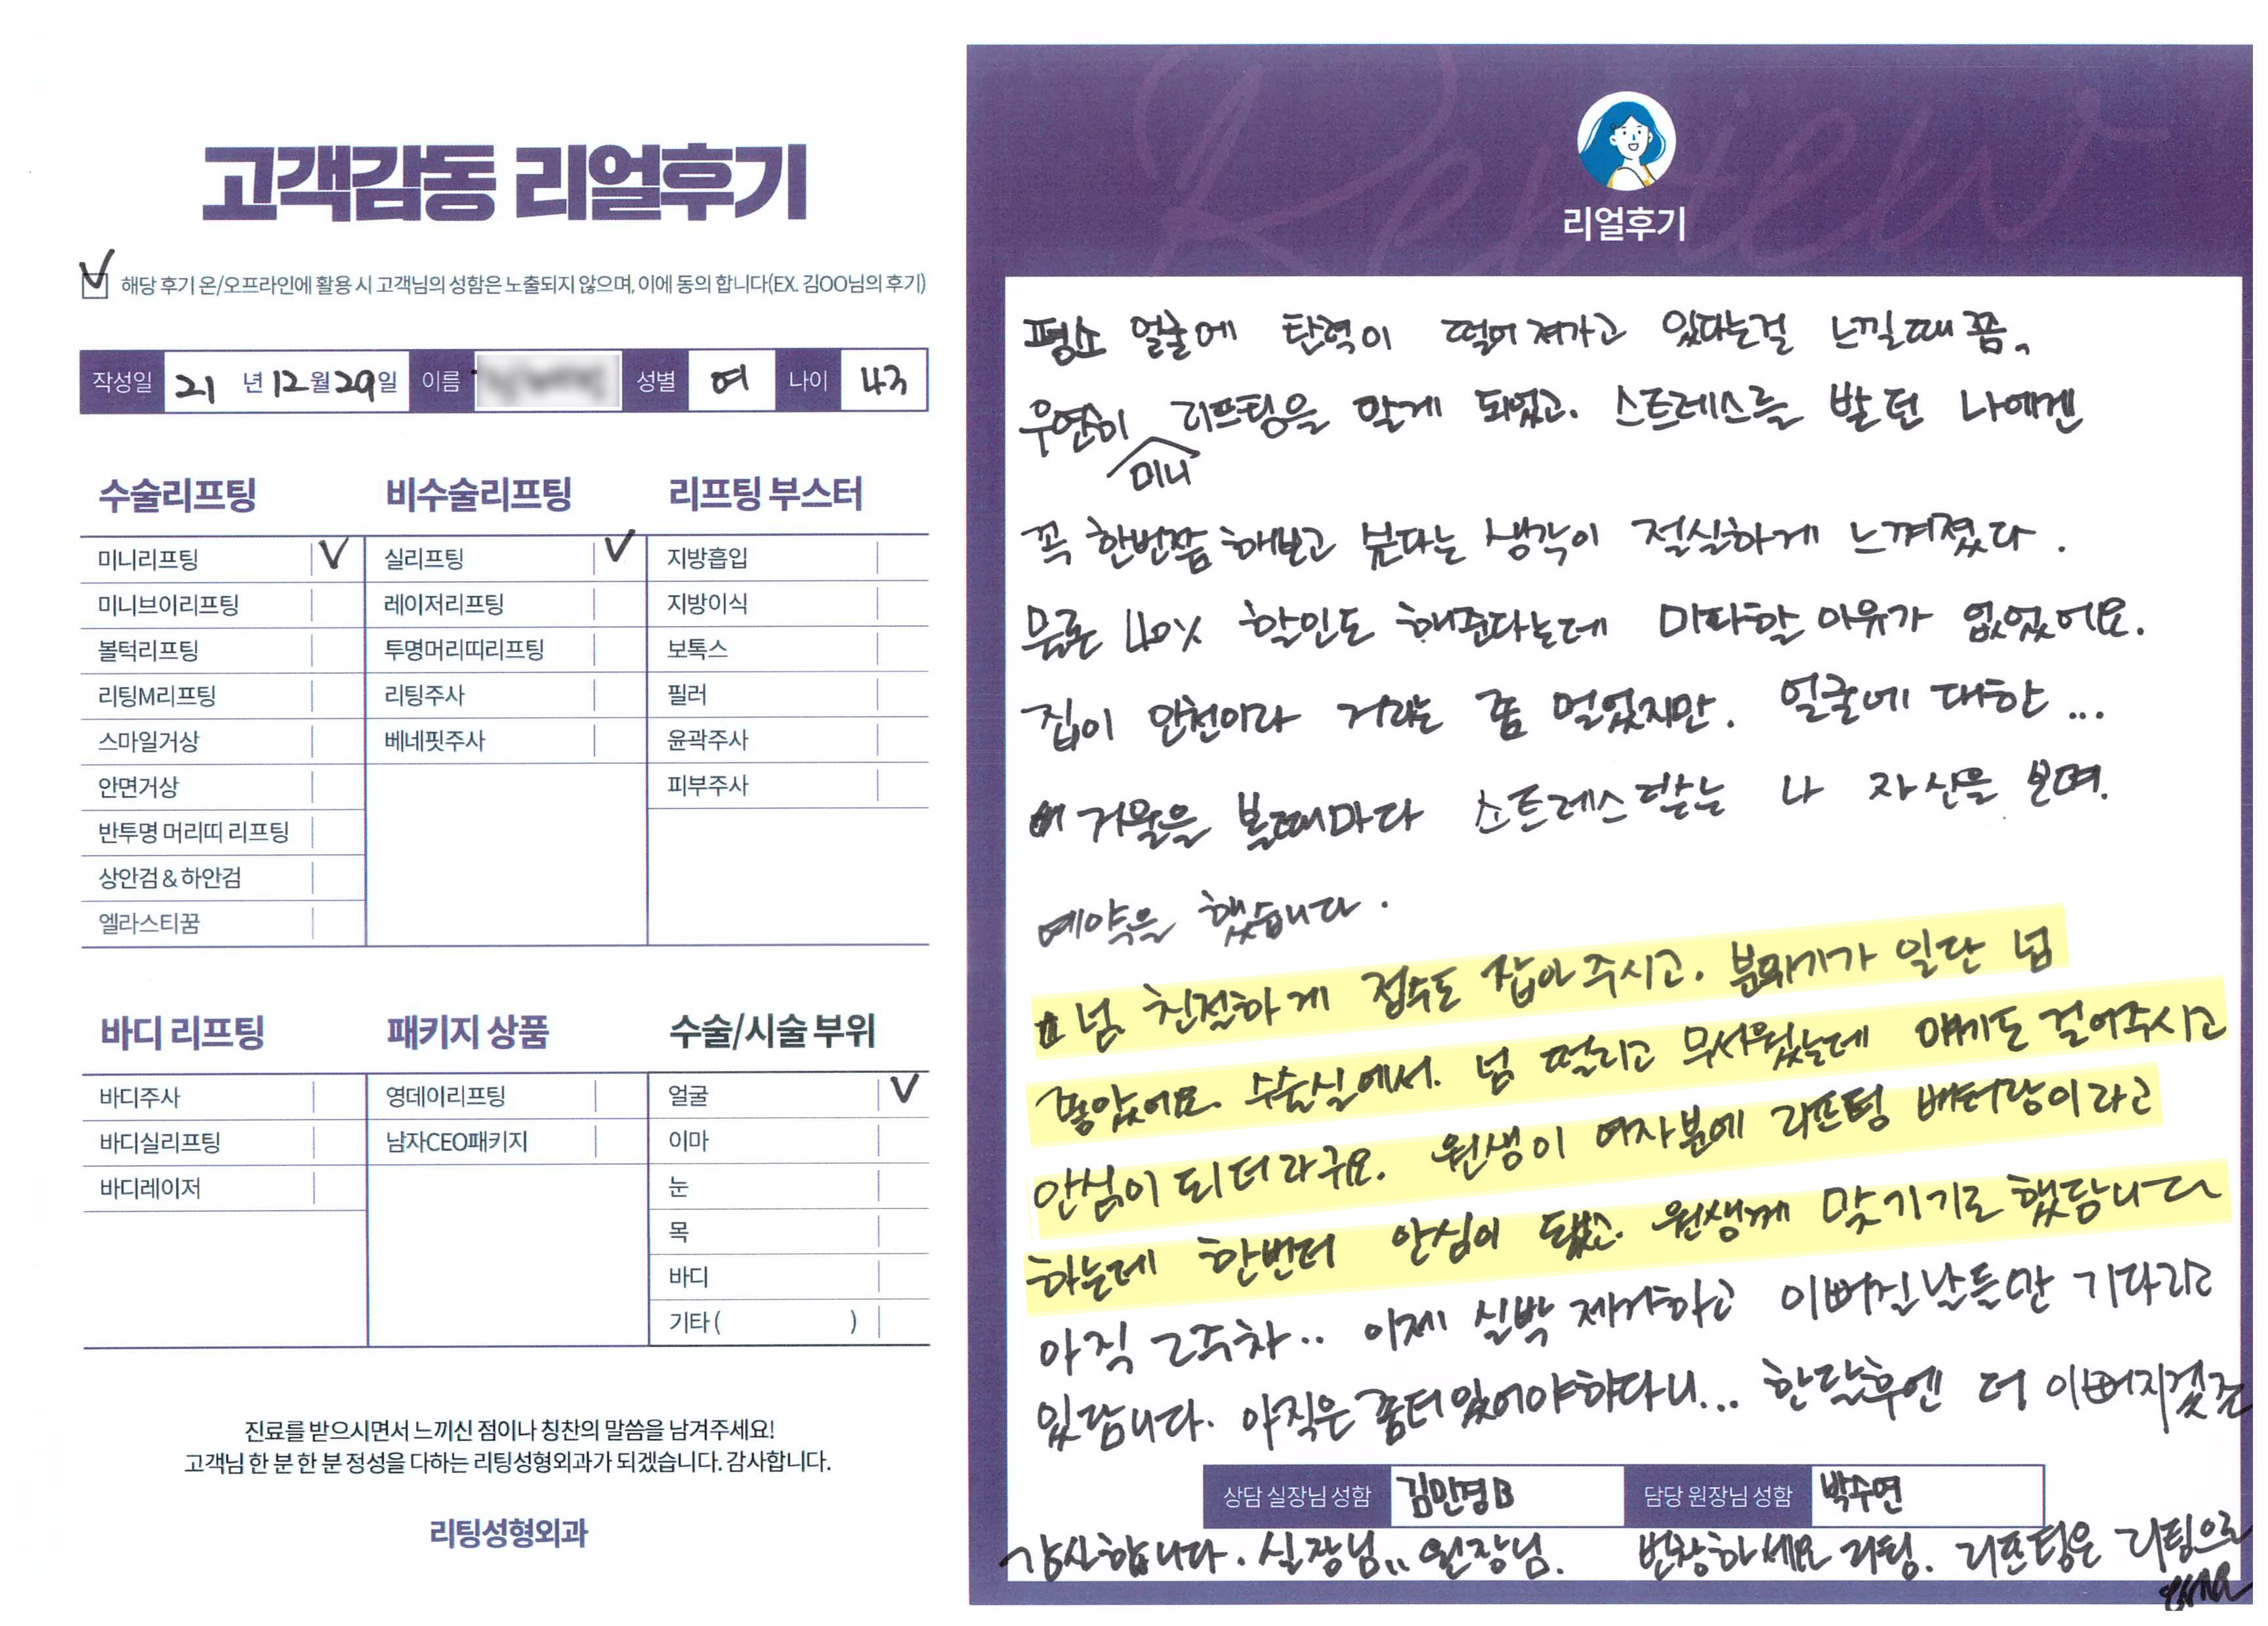 고객감동 리얼후기
해당 후기 온/오프라인에 활용 시 고객님의 성함은 노출되지 않으며, 이에 동의 합니다(EX. 김OO님의 후기)
작성일 21 년 12 월 29 일 이름 성별 여 나이 43
수술리프팅
미니리프팅 V
미니브이리프팅
볼턱리프팅
리팅M리프팅
스마일거상
안면거상
반투명 머리띠 리프팅
상안검 & 하안검
엘라스티꿈
비수술리프팅
실리프팅 V
레이저리프팅
투명머리띠리프팅
리팅주사
베네핏주사
리프팅 부스터
지방흡입
지방이식
보톡스
필러
윤곽주사
피부주사
바디 리프팅
바디주사
바디실리프팅
바디레이저
패키지 상품
영데이리프팅
남자CEO패키지
수술/시술 부위
얼굴 V
이마
눈
목
바디
기타 ( )
진료를 받으시면서 느끼신 점이나 칭찬의 말씀을 남겨주세요!
고객님 한 분 한 분 정성을 다하는 리팅성형외과가 되겠습니다. 감사합니다.
리팅성형외과
Review
리얼후기
평소 얼굴에 탄력이 떨어져가고 있다는걸 느낄때쯤.
우연히 미니 리프팅을 알게 되었고. 스트레스를 받던 나에겐
꼭 한번쯤 해보고 싶다는 생각이 절실하게 느껴졌다.
물론 40% 할인도 해준다는데 마다할 이유가 없었어요.
집이 인천이라 거리는 좀 멀었지만. 얼굴에 대한...
거울을 볼때마다 스트레스받는 나 자신을 보며.
예약을 했습니다.
넘 친절하게 접수도 잡아주시고. 분위기가 일단 넘
좋았어요. 수술실에서. 넘 떨리고 무서웠는데 얘기도 걸어주시고
안심이 되더라구요. 원생이 여자분에 리프팅 베터랑이라고
하는데 한번더 안심이 됐고. 원생께 맞기기로 했답니다
아직 2주차.. 이제 실밥 제거하고 이뻐질날들만 기다리고
있답니다. 아직은 좀더있어야한다니... 한달후엔 더 이뻐지겠죠
상담 실장님 성함 김민경B 담당 원장님 성함 박수연
감사합니다. 실장님,, 원장님. 번창하세요 리팅. 리프팅은 리팅으로